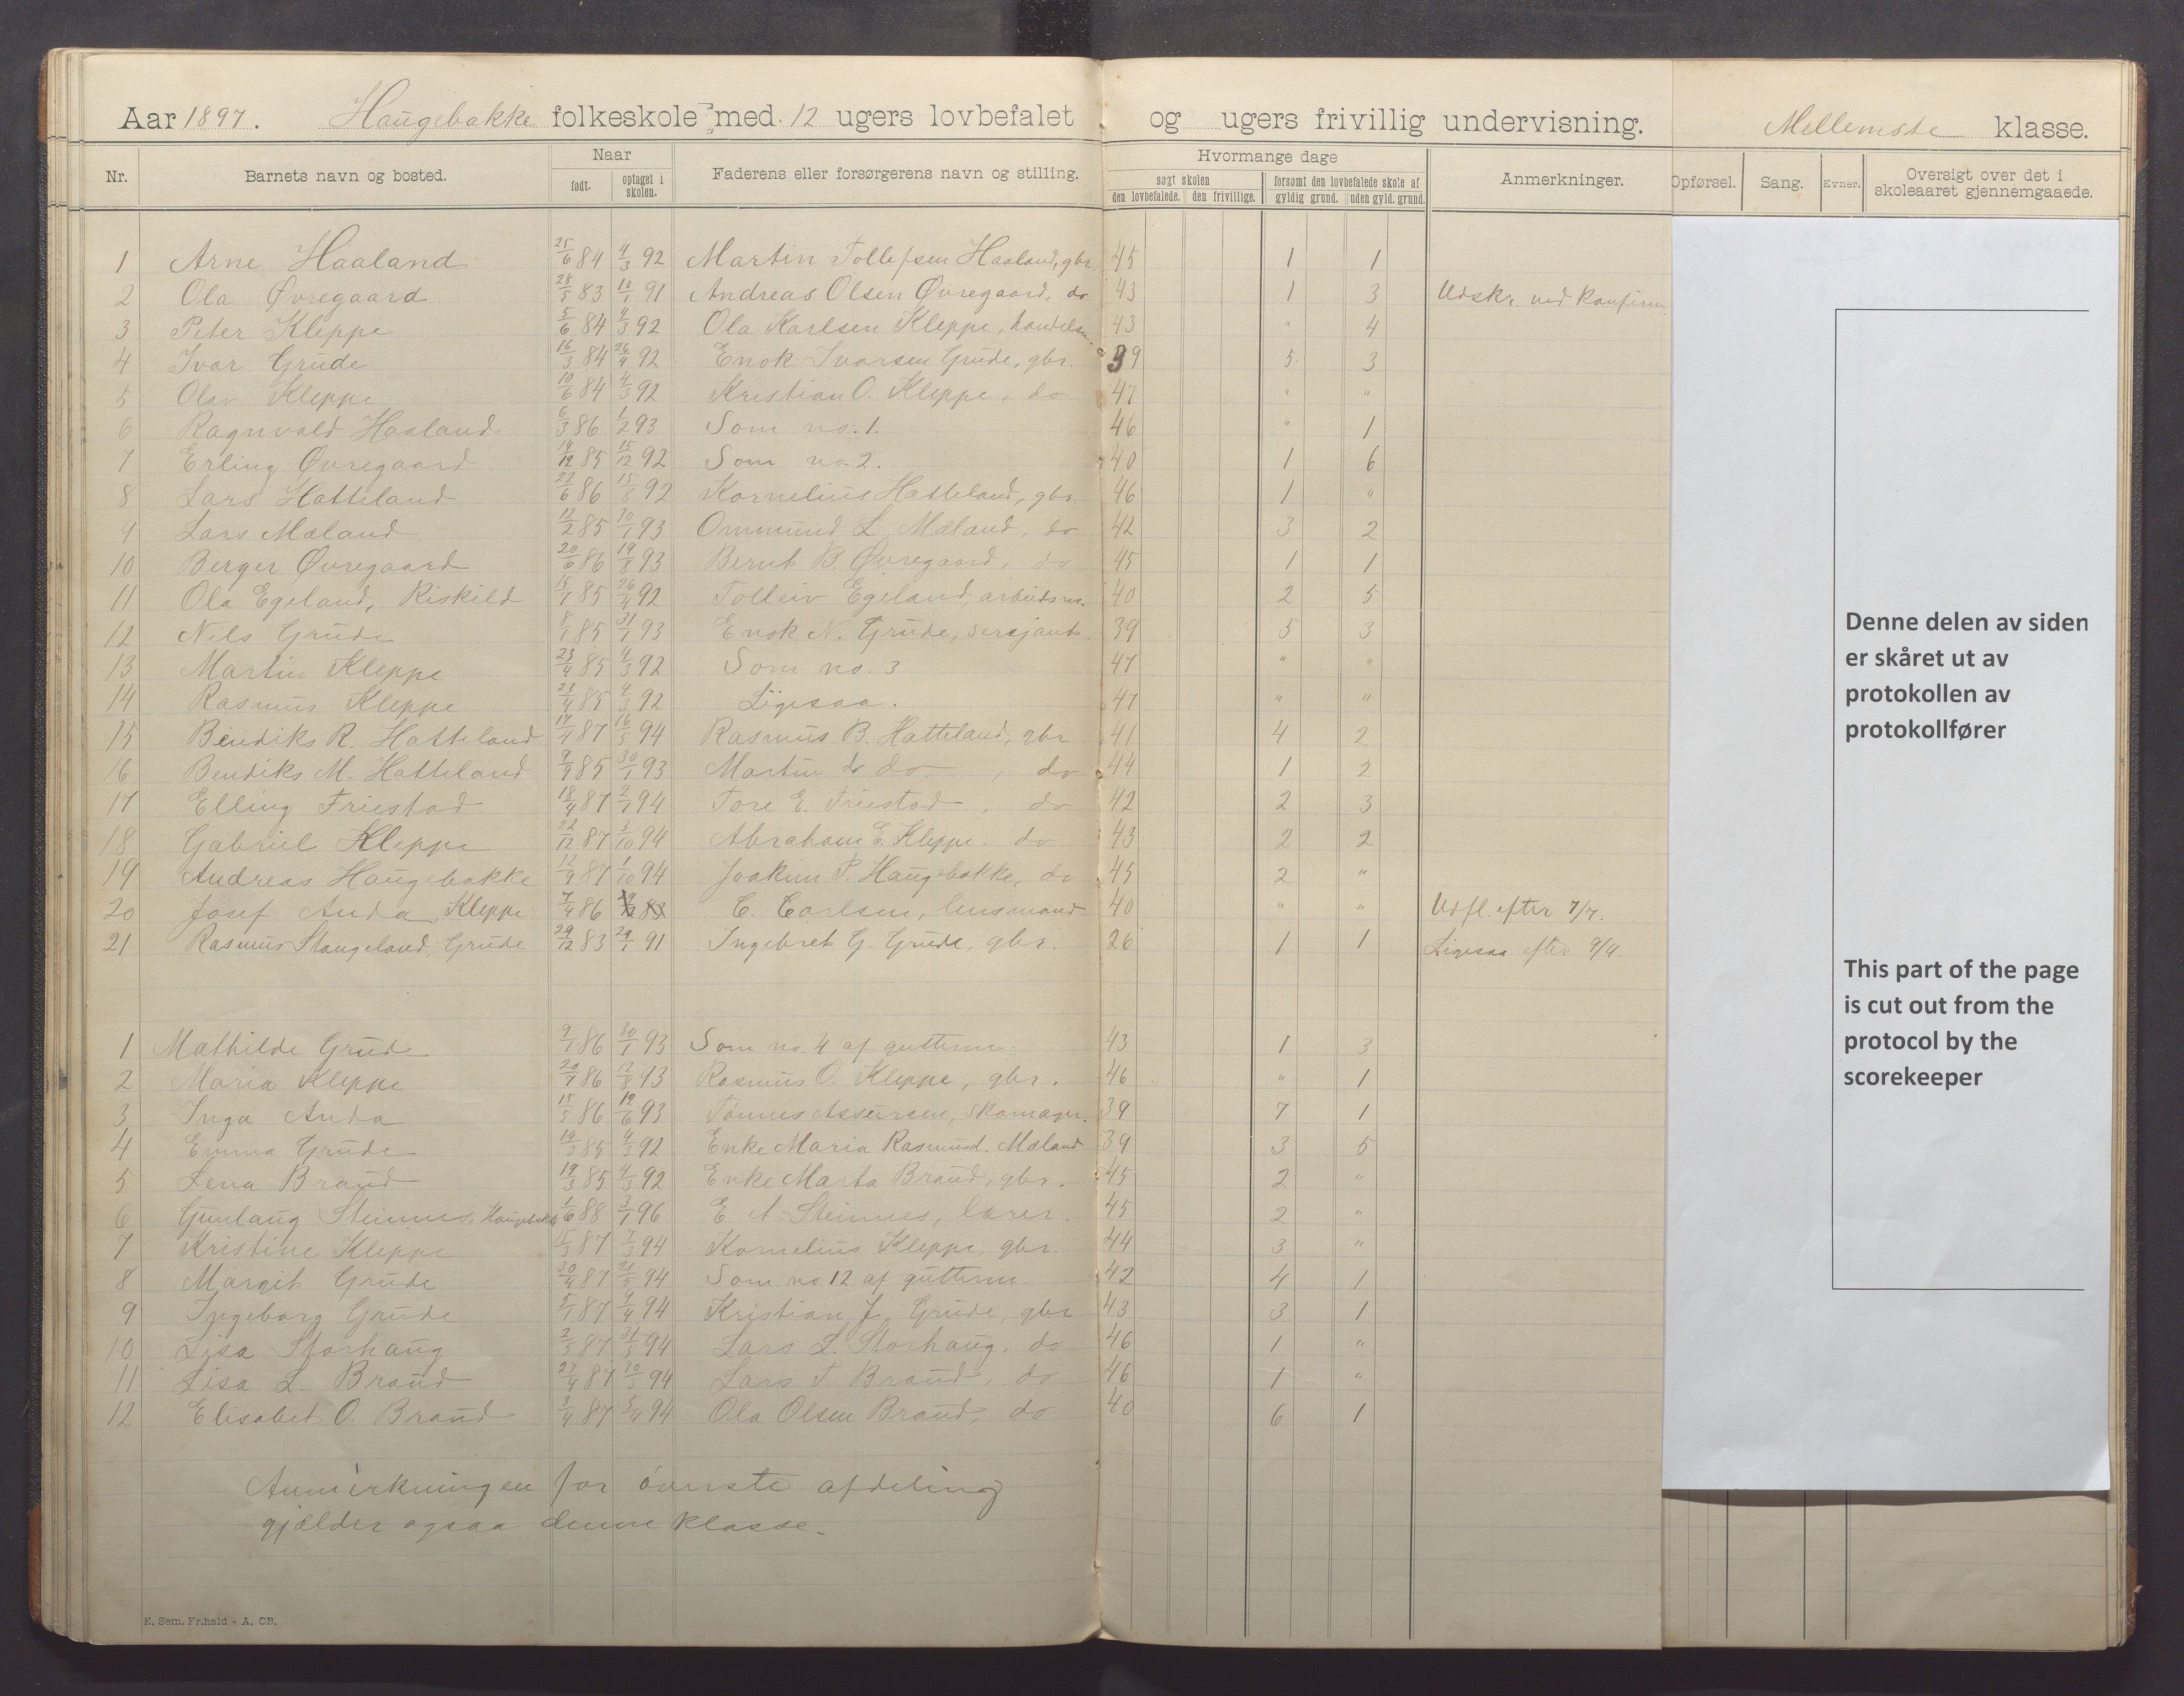 Aar 1897. Haugebakke folkeskole med 12 ugers lovbefalet og ugers frivillig undervisning. Mellemste klasse.
Nr. Barnets navn og bosted. Naar født. optaget i skolen. Faderens eller forsørgerens navn og stilling. Hvormange dage søgt skolen den lovbefalede. den frivillige. forsømt den lovbefalede skole af gyldig grund. uden gyld. grund. Anmerkninger. Opførsel. Sang. Evner. Oversigt over det i skoleaaret gjennemgaaede.
1 Arne Haaland 25/6 84 4/3 92 Martin Tollefsen Haaland, gbr. 45 1 1
2 Ola Øvregaard 28/5 83 10/1 91 Andreas Olsen Øvregaard, do 43 1 3 Udskr. ved konfirm.
3 Peter Kleppe 5/6 84 4/3 92 Ola Karlsen Kleppe, handelsm. 43 " 4
4 Ivar Grude 16/3 84 26/4 92 Enok Ivarsen Grude, gbr. 39 5 3
5 Olav Kleppe 10/6 84 4/3 92 Kristian O. Kleppe, do 47 " "
6 Ragnvald Haaland 6/3 86 1/2 93 Som no. 1. 46 " 1
7 Erling Øvregaard 14/12 85 15/12 92 Som no. 2. 40 1 6
8 Lars Hatteland 22/6 86 15/8 92 Kornelius Hatteland, gbr. 46 1 "
9 Lars Mæland 12/2 85 10/1 93 Ommund L. Mæland, do 42 3 2
10 Berger Øvregaard 20/6 86 19/8 93 Bernt B. Øvregaard, do 45 1 1
11 Ola Egeland, Riskild 15/1 85 26/4 92 Tolleiv Egeland, arbeidsm. 40 2 5
12 Nils Grude 8/1 85 31/1 93 Enok N. Grude, sersjant 39 5 3
13 Martin Kleppe 23/4 85 4/3 92 Som no. 3 47 " "
14 Rasmus Kleppe 23/4 85 4/3 92 Ligesaa. 47 " "
15 Bendiks R. Hatteland 17/4 87 16/5 94 Rasmus B. Hatteland, gbr 41 4 2
16 Bendiks M. Hatteland 9/9 85 30/1 93 Martin do do, do 44 1 2
17 Elling Friestad 18/4 87 2/1 94 Tore E. Friestad, do 42 2 3
18 Gabriel Kleppe 22/12 87 3/10 94 Abraham E. Kleppe, do 43 2 2
19 Andreas Haugebakke 12/9 87 1/10 94 Joakim P. Haugebakke, do 45 2 "
20 Josef Anda, Kleppe 7/4 86 C. Carlsen, lensmand 40 " " Udfl. efter 7/7.
21 Rasmus Stangeland, Grude 29/12 83 29/1 91 Ingebret G. Grude, gbr. 26 1 1 Ligesaa efter 9/4.
1 Mathilde Grude 9/1 86 10/1 93 Som no. 4 af gutterne. 43 1 3
2 Maria Kleppe 20/7 86 12/8 93 Rasmus O. Kleppe, gbr. 46 " 1
3 Inga Anda 15/5 86 12/6 93 Tønnes Assersen, skomagr. 39 7 1
4 Emma Grude 19/3 85 4/3 92 Enke Maria Rasmusd. Mæland 39 3 5
5 Lena Braud 19/3 85 4/3 92 Enke Marta Braud, gbr. 45 2 "
6 Gunlaug Steinnes, Haugebakke 1/6 88 3/1 96 E. A. Steinnes, lærer. 45 2 "
7 Kristine Kleppe 15/3 87 7/3 94 Kornelius Kleppe, gbr. 44 3 "
8 Margit Grude 30/4 87 21/5 94 Som no. 12 af gutterne. 42 4 1
9 Ingeborg Grude 5/1 87 9/4 94 Kristian J. Grude, gbr 43 3 1
10 Lisa Storhaug 2/5 87 31/5 94 Lars L. Storhaug, do 46 1 "
11 Lisa L. Braud 27/4 87 10/5 94 Lars T. Braud, do 46 1 "
12 Elisabet O. Braud 3/4 87 5/4 94 Ola Olsen Braud, do 40 6 1
Anmerkningen for øverste afdeling
gjælder ogsaa denne klasse.
E. Sem, Fr.hald - A. CB.
Denne delen av siden
er skåret ut av
protokollen av
protokollfører
This part of the page
is cut out from the
protocol by the
scorekeeper